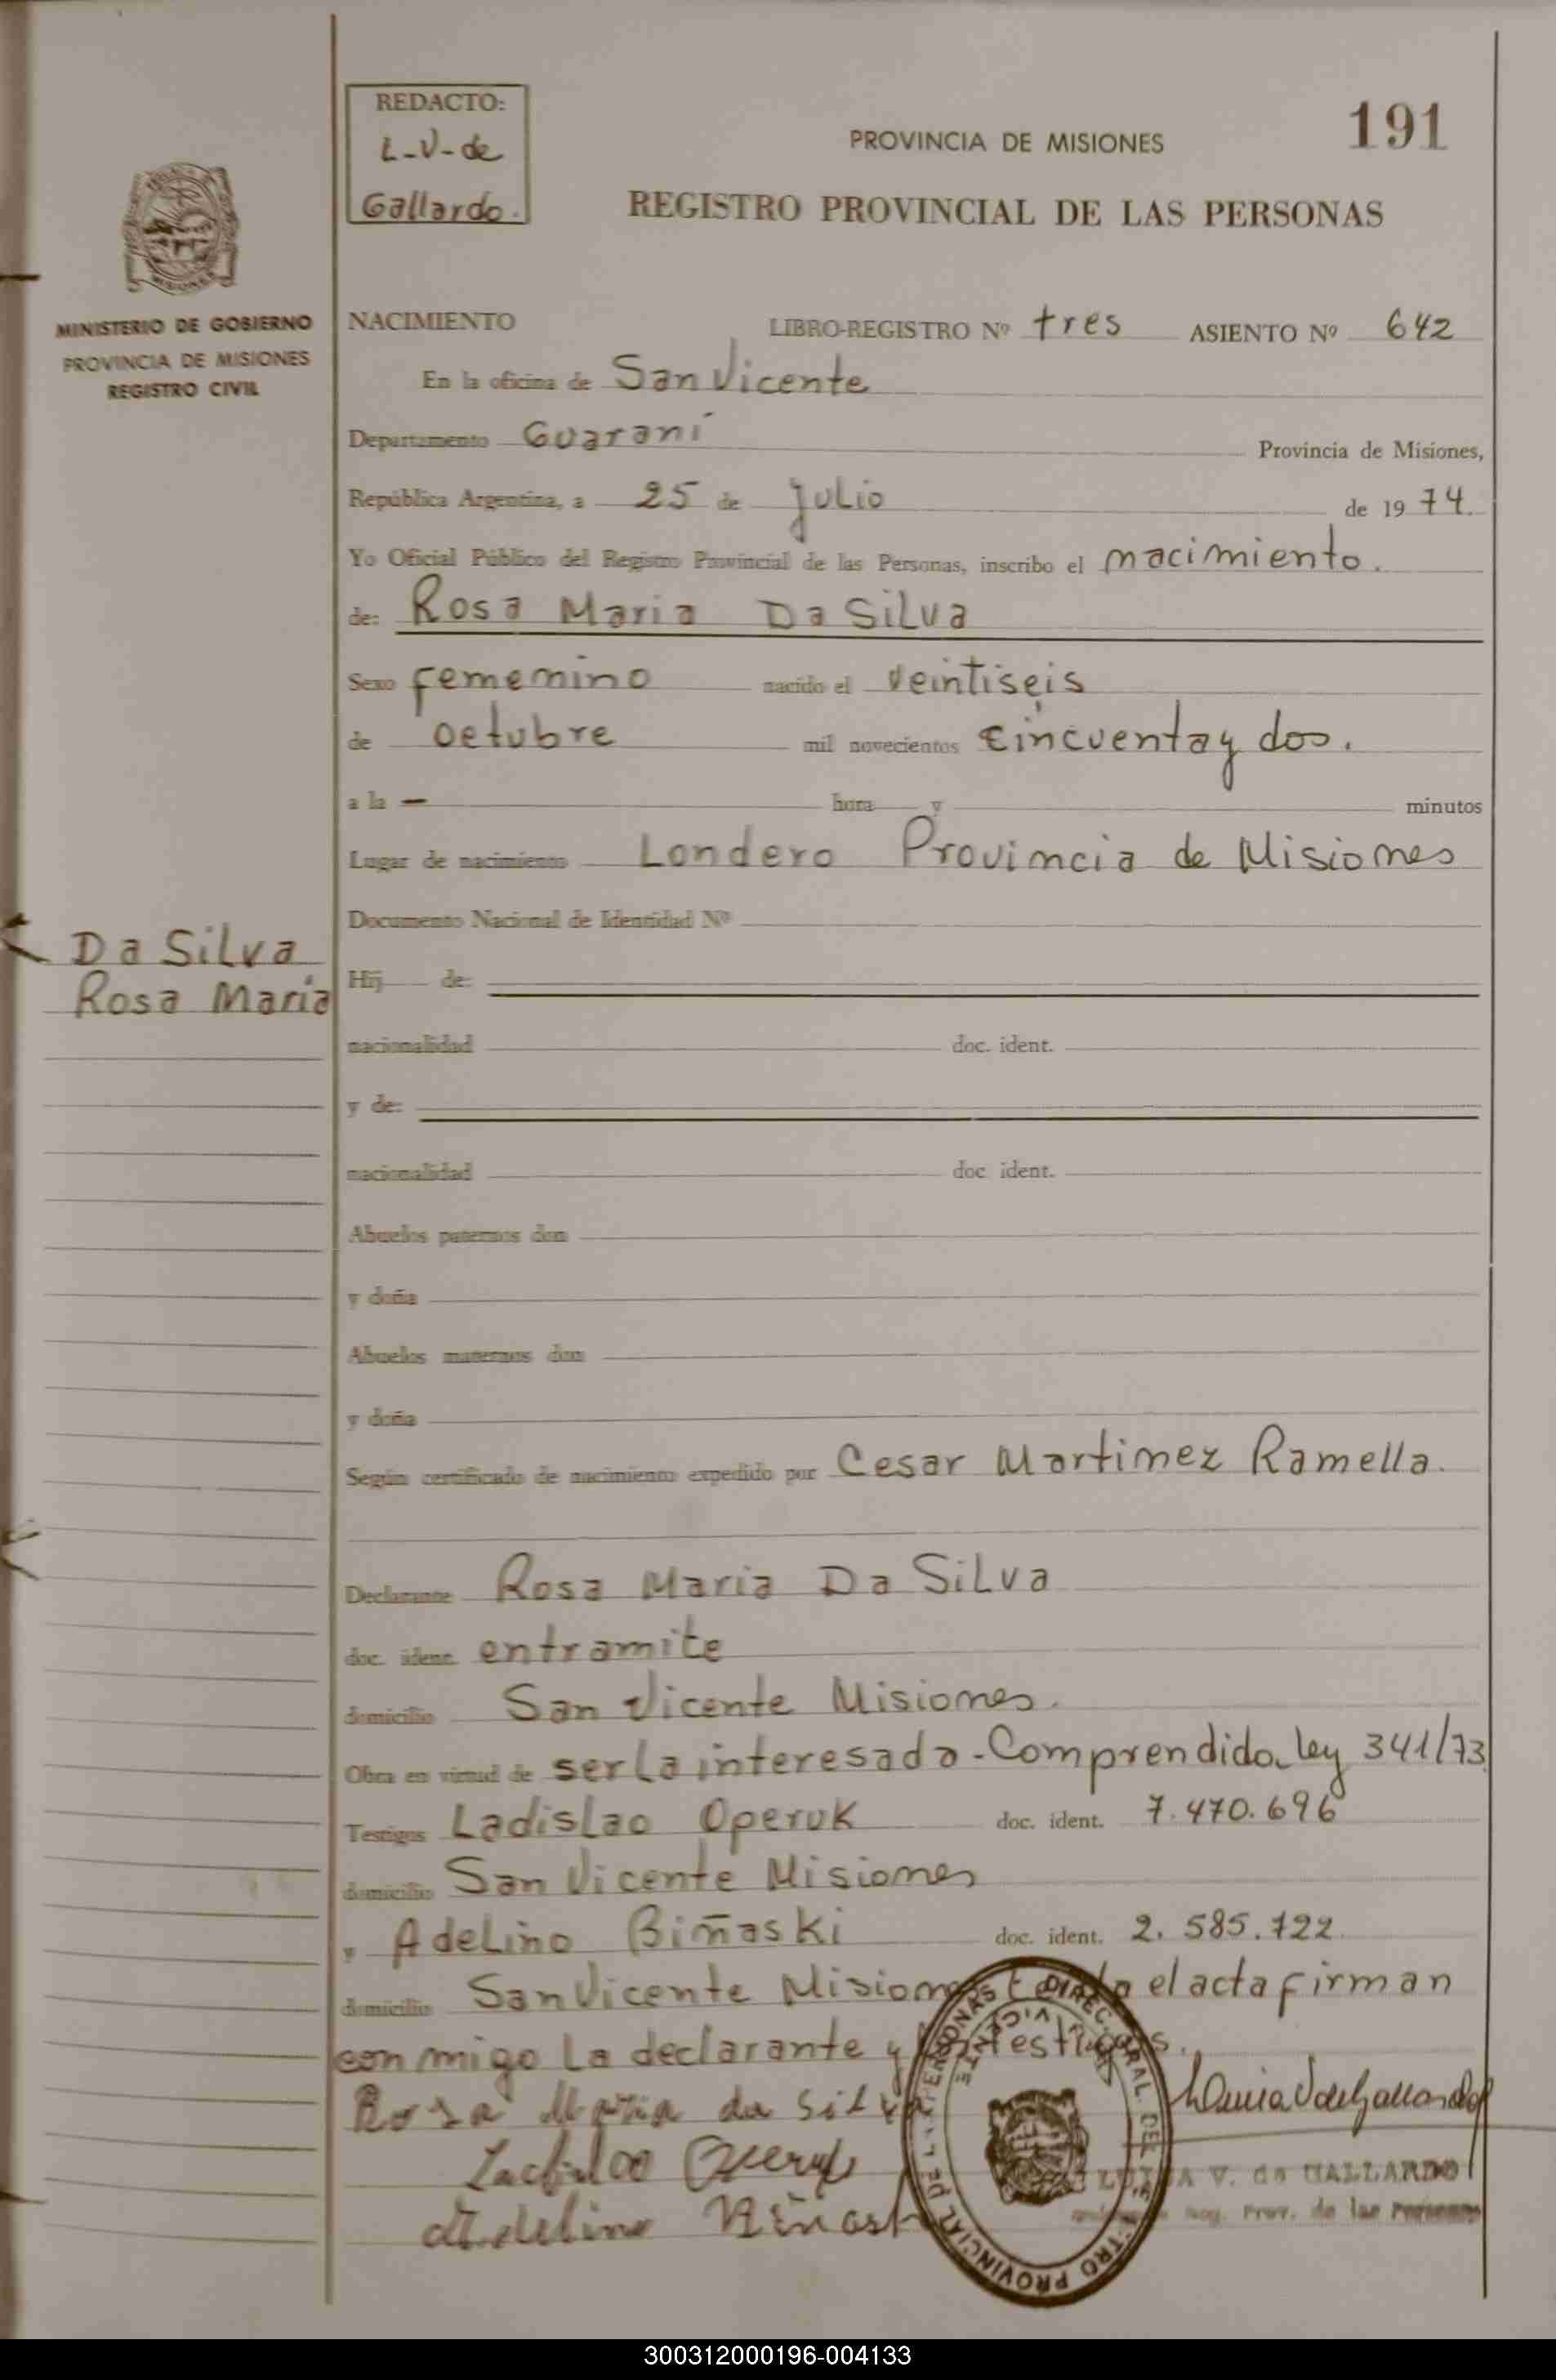 REDACTO:
L-V-de
Gallardo.
191
PROVINCIA DE MISIONES
REGISTRO PROVINCIAL DE LAS PERSONAS
MISIONES
MINISTERIO DE GOBIERNO
PROVINCIA DE MISIONES
REGISTRO CIVIL
NACIMIENTO LIBRO-REGISTRO Nº tres ASIENTO Nº 642
En la oficina de San Vicente
Departamento Guaraní Provincia de Misiones,
República Argentina, a 25 de julio de 1974.
Yo Oficial Público del Registro Provincial de las Personas, inscribo el nacimiento.
de: Rosa Maria Da Silva
Sexo femenino nacido el veintiseis
de octubre mil novecientos cincuenta y dos.
a la — hora y minutos
Lugar de nacimiento Londero Provincia de Misiones
Documento Nacional de Identidad Nº
Da Silva
Rosa Maria
Hij de:
nacionalidad doc. ident.
y de:
nacionalidad doc. ident.
Abuelos paternos don
y doña
Abuelos maternos don
y doña
Según certificado de nacimiento expedido por Cesar Martinez Ramella.
Declarante Rosa Maria Da Silva
doc. ident. entramite
domicilio San Vicente Misiones.
Obra en virtud de ser la interesada - Comprendida Ley 341/73
Testigos Ladislao Operuk doc. ident. 7.470.696
domicilio San Vicente Misiones
y Adelino Biñaski doc. ident. 2.585.722
domicilio San Vicente Misiones el acta firman
con migo La declarante y testigos.
Rosa Maria da Silva
Adelino
LUISA V. de GALLARDO
Reg. Prov. de las Personas
300312000196-004133